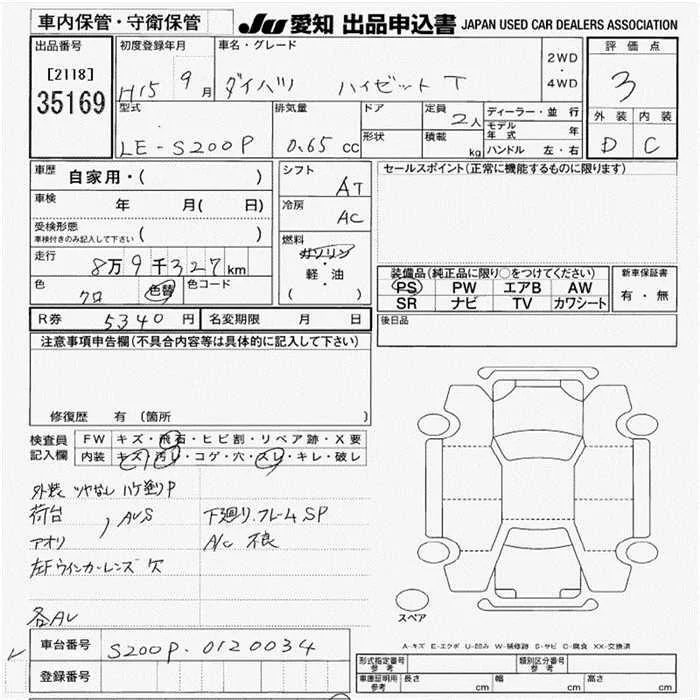 車内保管・守衛保管 JU 愛知 出品申込書 JAPAN USED CAR DEALERS ASSOCIATION
出品番号 [2118] 35169
初度登録年月 H15 9月
車名・グレード ダイハツ ハイゼット T
2WD・4WD
評価点 3
外装 内装
D C
型式 LE-S200P
排気量 0.65 cc
ドア
形状
定員 2人
積載 kg
ディーラー・並行
モデル年式 年
ハンドル 左・右
車歴 自家用・( )
車検 年 月( 日)
受検形態 ( )
車検付きのみ記入して下さい
走行 8万9千327km
色 クロ 色替 色コード
シフト AT
冷房 AC
燃料 ガソリン・軽・油 ( )
セールスポイント(正常に機能するものに限ります)
装備品(純正品に限り○をつけてください)
PS PW エアB AW
SR ナビ TV カワシート
新車保証書 有・無
後日品
R券 5340円 名変期限 月 日
注意事項申告欄(不具合内容等は具体的に記入して下さい)
修復歴 有(箇所 )
検査員記入欄
FW キズ・飛石・ヒビ割・リペア跡・X要
内装 キズ・汚レ・コゲ・穴・スレ・キレ・破レ
外装 ツヤなし ハケ塗りP
荷台
アオリ , AUS
下廻り.フレームSP
A/C 不良
左Fウインカーレンズ 欠
各AU
車台番号 S200P-0120034
登録番号
スペア
A-キズ E-エクボ U-凹み W-補修跡 S-サビ C-腐食 XX-交換済
形式指定番号 参考 類別区分番号 参考
車庫証明用 参考 長さ cm 幅 cm 高さ cm